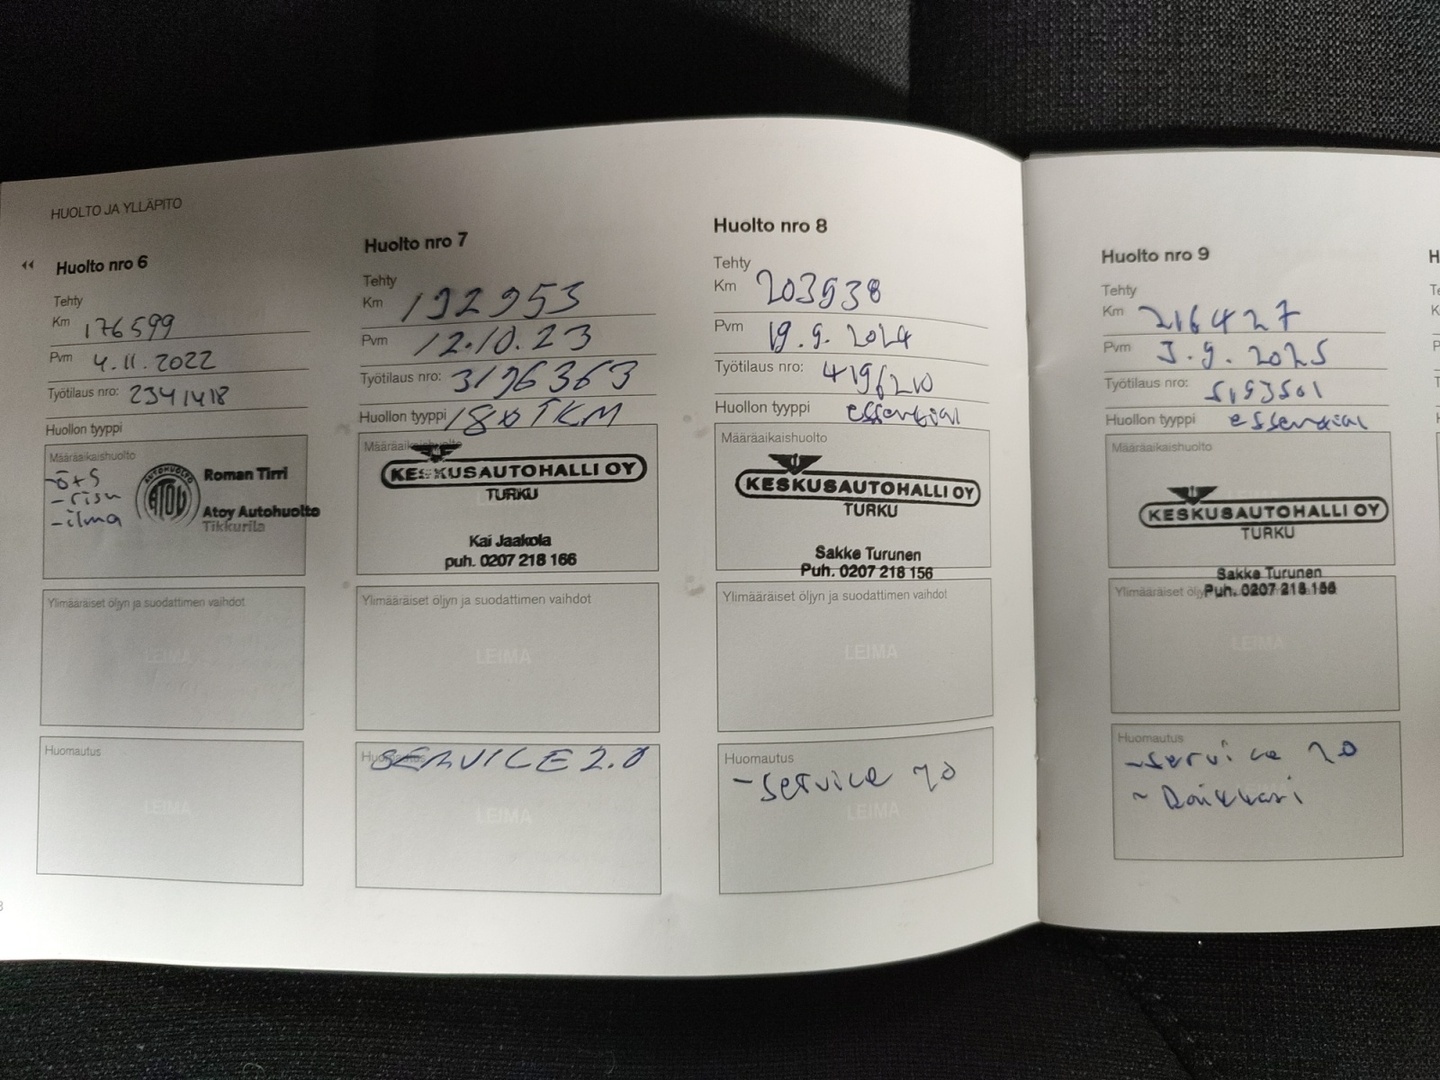 HUOLTO JA YLLÄPITO
Huolto nro 6
Tehty
Km 176599
Pvm 4.11.2022
Työtilaus nro: 2341418
Huollon tyyppi
Määräaikaishuolto
-ö+s
-risu
-ilma
AUTOHUOLTO
ATOY
Roman Tirri
Atoy Autohuolto
Tikkurila
Ylimääräiset öljyn ja suodattimen vaihdot
LEIMA
Huomautus
LEIMA
Huolto nro 7
Tehty
Km 192953
Pvm 12.10.23
Työtilaus nro: 3196363
Huollon tyyppi 180TKM
Määräaikaishuolto
KESKUSAUTOHALLI OY
TURKU
Kai Jaakola
puh. 0207 218 166
Ylimääräiset öljyn ja suodattimen vaihdot
LEIMA
Huomautus
SERVICE 2.0
LEIMA
Huolto nro 8
Tehty
Km 203938
Pvm 19.9.2024
Työtilaus nro: 4196210
Huollon tyyppi essential
Määräaikaishuolto
KESKUSAUTOHALLI OY
TURKU
Sakke Turunen
Puh. 0207 218 156
Ylimääräiset öljyn ja suodattimen vaihdot
LEIMA
Huomautus
-service 20
LEIMA
Huolto nro 9
Tehty
Km 216427
Pvm 3.9.2025
Työtilaus nro: 5193501
Huollon tyyppi essential
Määräaikaishuolto
KESKUSAUTOHALLI OY
TURKU
Sakke Turunen
Puh. 0207 218 156
Ylimääräiset
LEIMA
Huomautus
-service 20